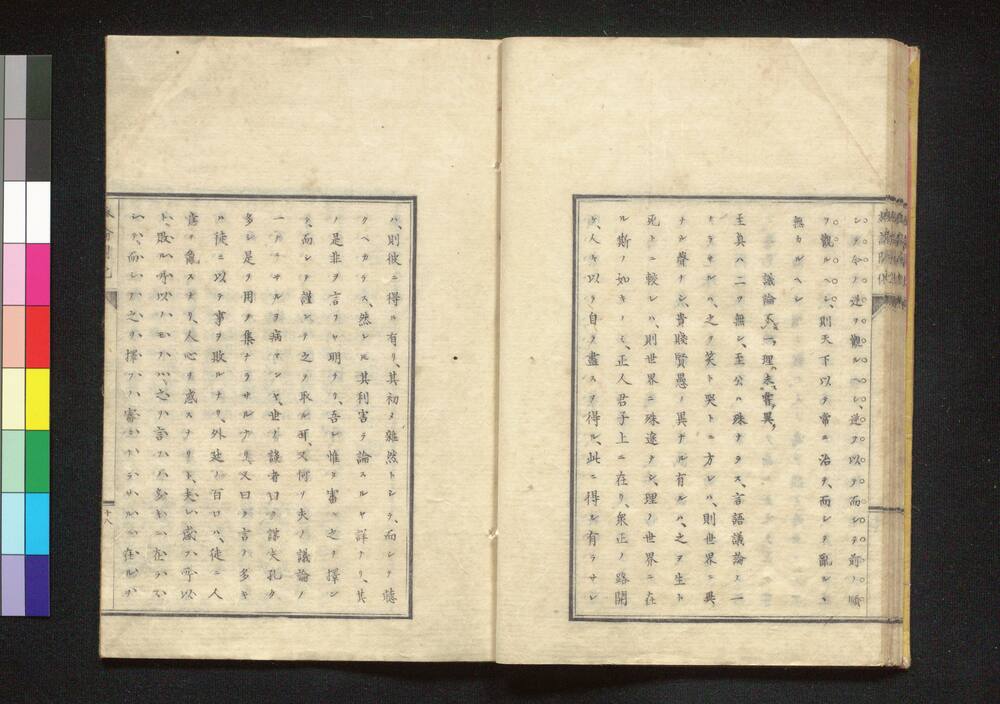 シテ今ノ逆ヲ觀ルヘシ、逆ヲ以テ而シテ前ノ順
ヲ觀ルヘシ、則天下以テ常ニ治テ、而シテ亂ルヽ
無カルヘシ
議論不一、理未嘗異、
至眞ハ二ツ無シ、至公ハ殊ナラス、言語議論ノ一
ナラサルハ、之ヲ笑ト哭トニ方レハ、則世界ニ異
ナル聲ナシ、貴賤賢愚ノ異ナル有ルハ、之ヲ生ト
死トニ較レハ、則世界ニ殊途ナシ、理ノ世界ニ在
ル斯ノ如キノミ、正人君子上ニ在リ、衆正ノ路開
ケ、人々以テ自ラ盡スヲ得ル、此ニ得ル有ラサレ
ハ、則彼ニ得ル有リ、其初メ雜然トシテ、而シテ聽
クヘカラス、然レ𪜈其利害ヲ論スルヤ詳ナリ、其
ノ是非ヲ言フヤ明ナリ、吾レ惟ニ審ニ之ヲ擇ン
テ、而シテ謹ンテ之ヲ取ル耳、又何ソ夫ノ議論ノ
一ナラサルヲ病マンヤ、世ノ議者曰ク謀夫孔タ
多シ是ヲ用テ集ナラサルナリ又曰ク言ノ多キ
ハ徒ニ以テ事ヲ敗ルナリ、外廷ノ百口ハ、徒ニ人
官ヲ亂スナリ、人心ヲ惑スナリト、夫レ惑フ所以
ト、敗ル所以ノモノハ、之ノ言ノ多キニ在ラス
シテ、而シテ之ヲ擇フノ審ニナラサルニ在ルナ
十八